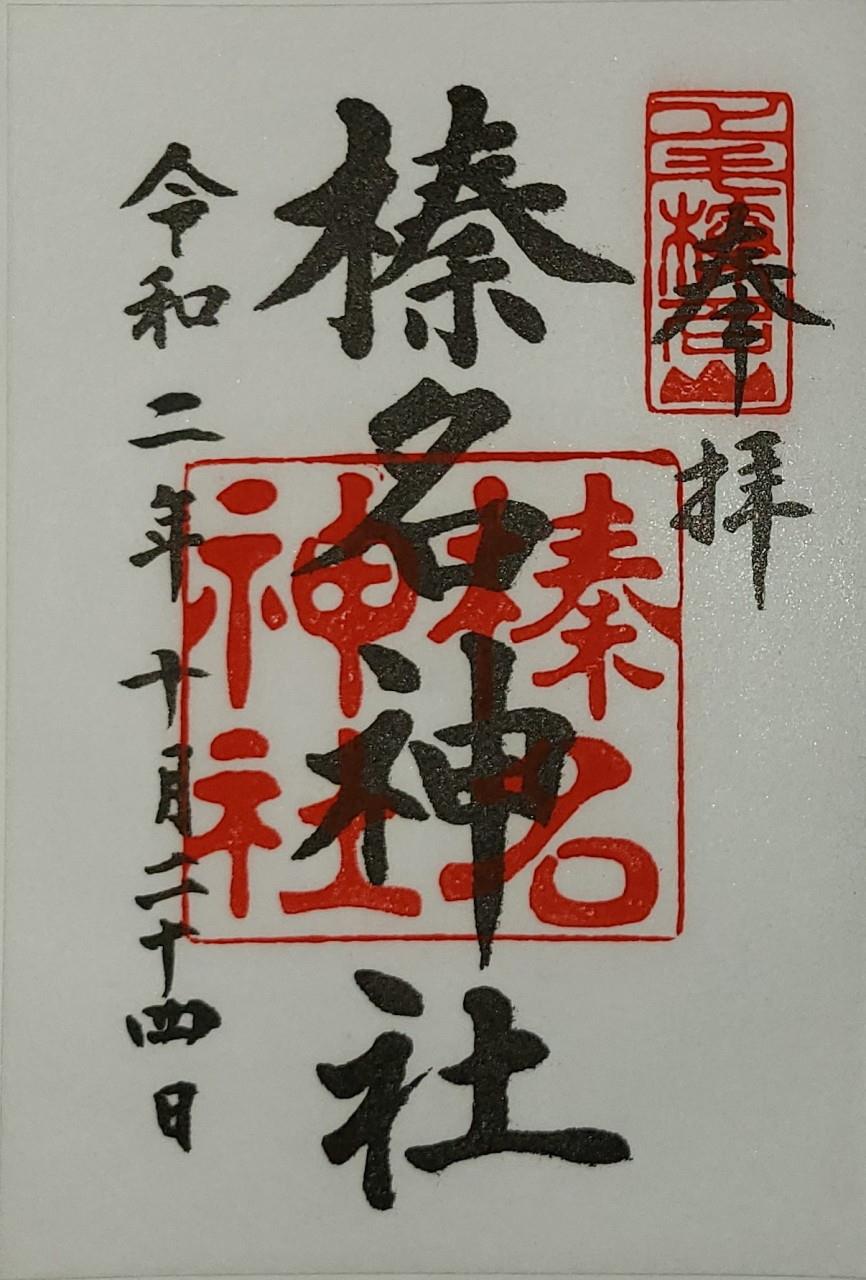 奉拝
上毛榛名山
榛名神社
榛名神社
令和二年十月二十四日